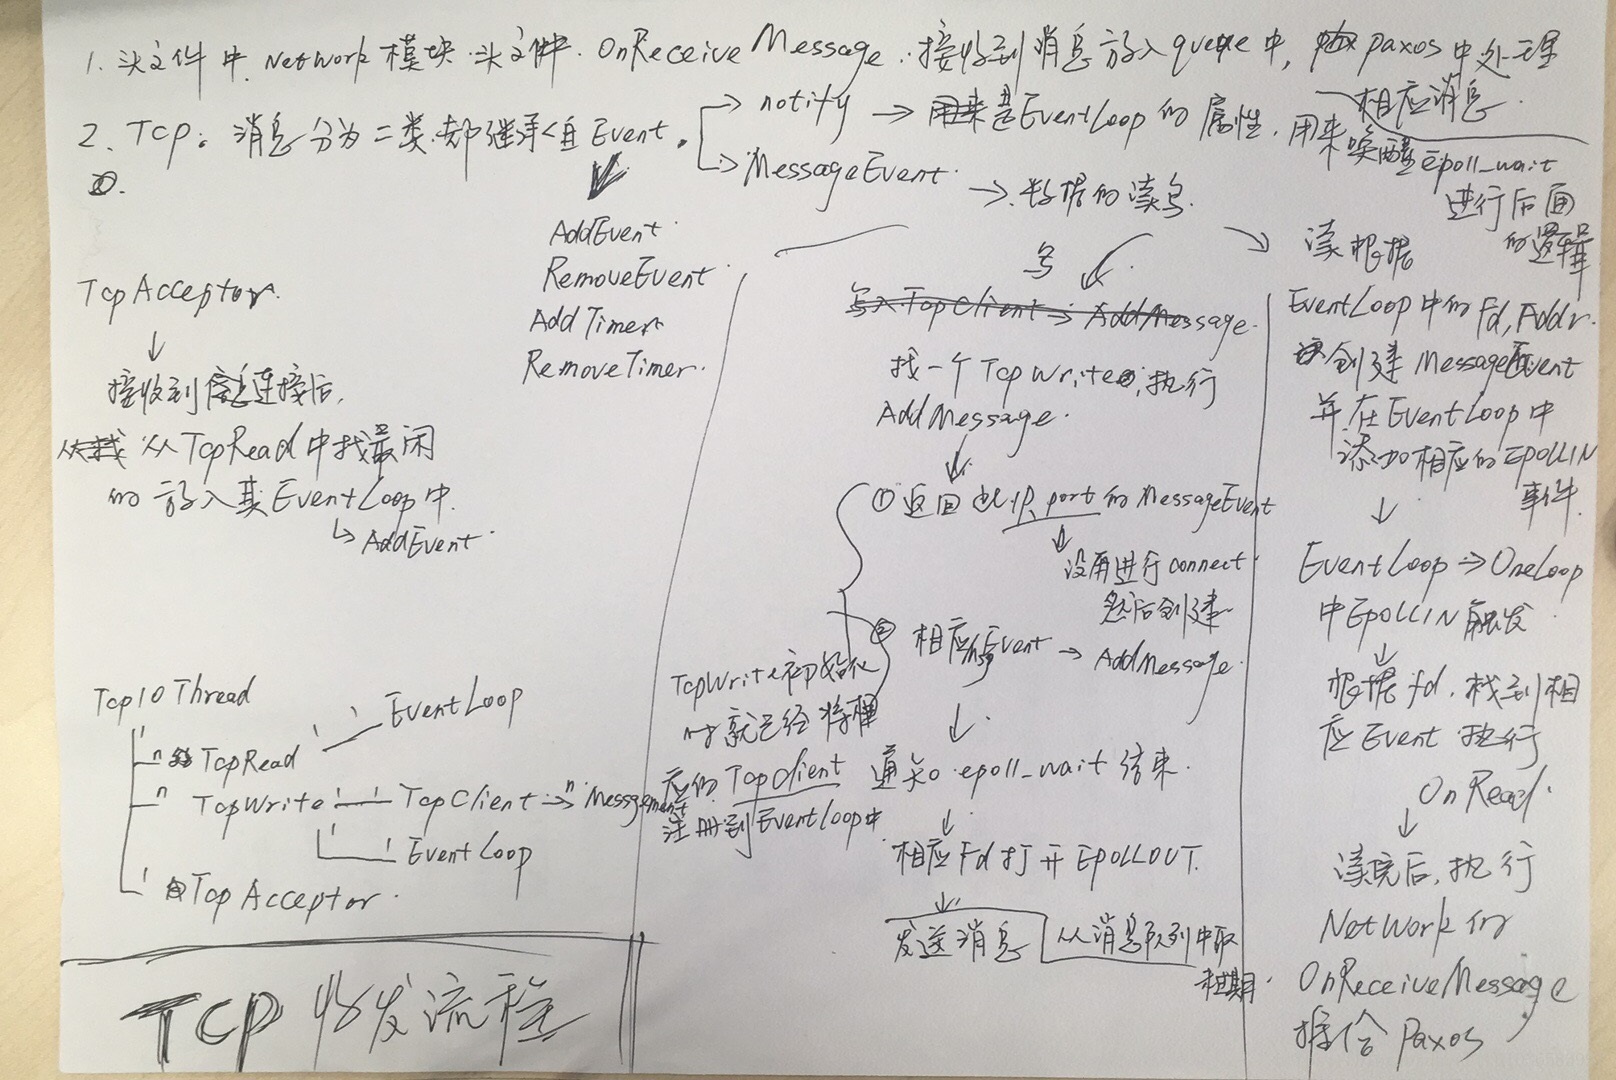 1. 头文件中. Network 模块.头文件. OnReceive Message. 接收到消息放入queue中, paxos中处理
相应消息.
2. Tcp: 消息分为二类.都继承自Event.
notify → 是EventLoop的属性, 用来唤醒epoll_wait
进行后面
的逻辑
MessageEvent → 数据的读写.
AddEvent.
RemoveEvent.
AddTimer
RemoveTimer.
TcpAcceptor.
↓
接收到连接后,
从TcpRead中找最闲
的放入其EventLoop中.
↳ AddEvent.
TcpIO Thread
n TcpRead
EventLoop
n TcpWrite TcpClient → n MessageEvent
EventLoop
TcpAcceptor.
TCP 收发流程
写
写入TcpClient → AddMessage.
找一个TcpWrite,执行
AddMessage.
↓
① 返回此IP, port的MessageEvent
↓
没有进行connect
然后创建
② 相应的Event → AddMessage.
TcpWrite初始化
时就已经将相
应的TcpClient
注册到EventLoop中
↓
通知 epoll_wait 结束.
↓
相应Fd打开EPOLLOUT.
↓
发送消息 从消息队列中取
读根据
EventLoop中的fd, Addr.
创建MessageEvent
并在EventLoop中
添加相应的EPOLLIN
事件.
↓
EventLoop → OneLoop
中EPOLLIN触发
↓
根据fd, 找到相
应Event 执行
OnRead.
↓
读完后,执行
NetWork的
OnReceiveMessage
推给Paxos